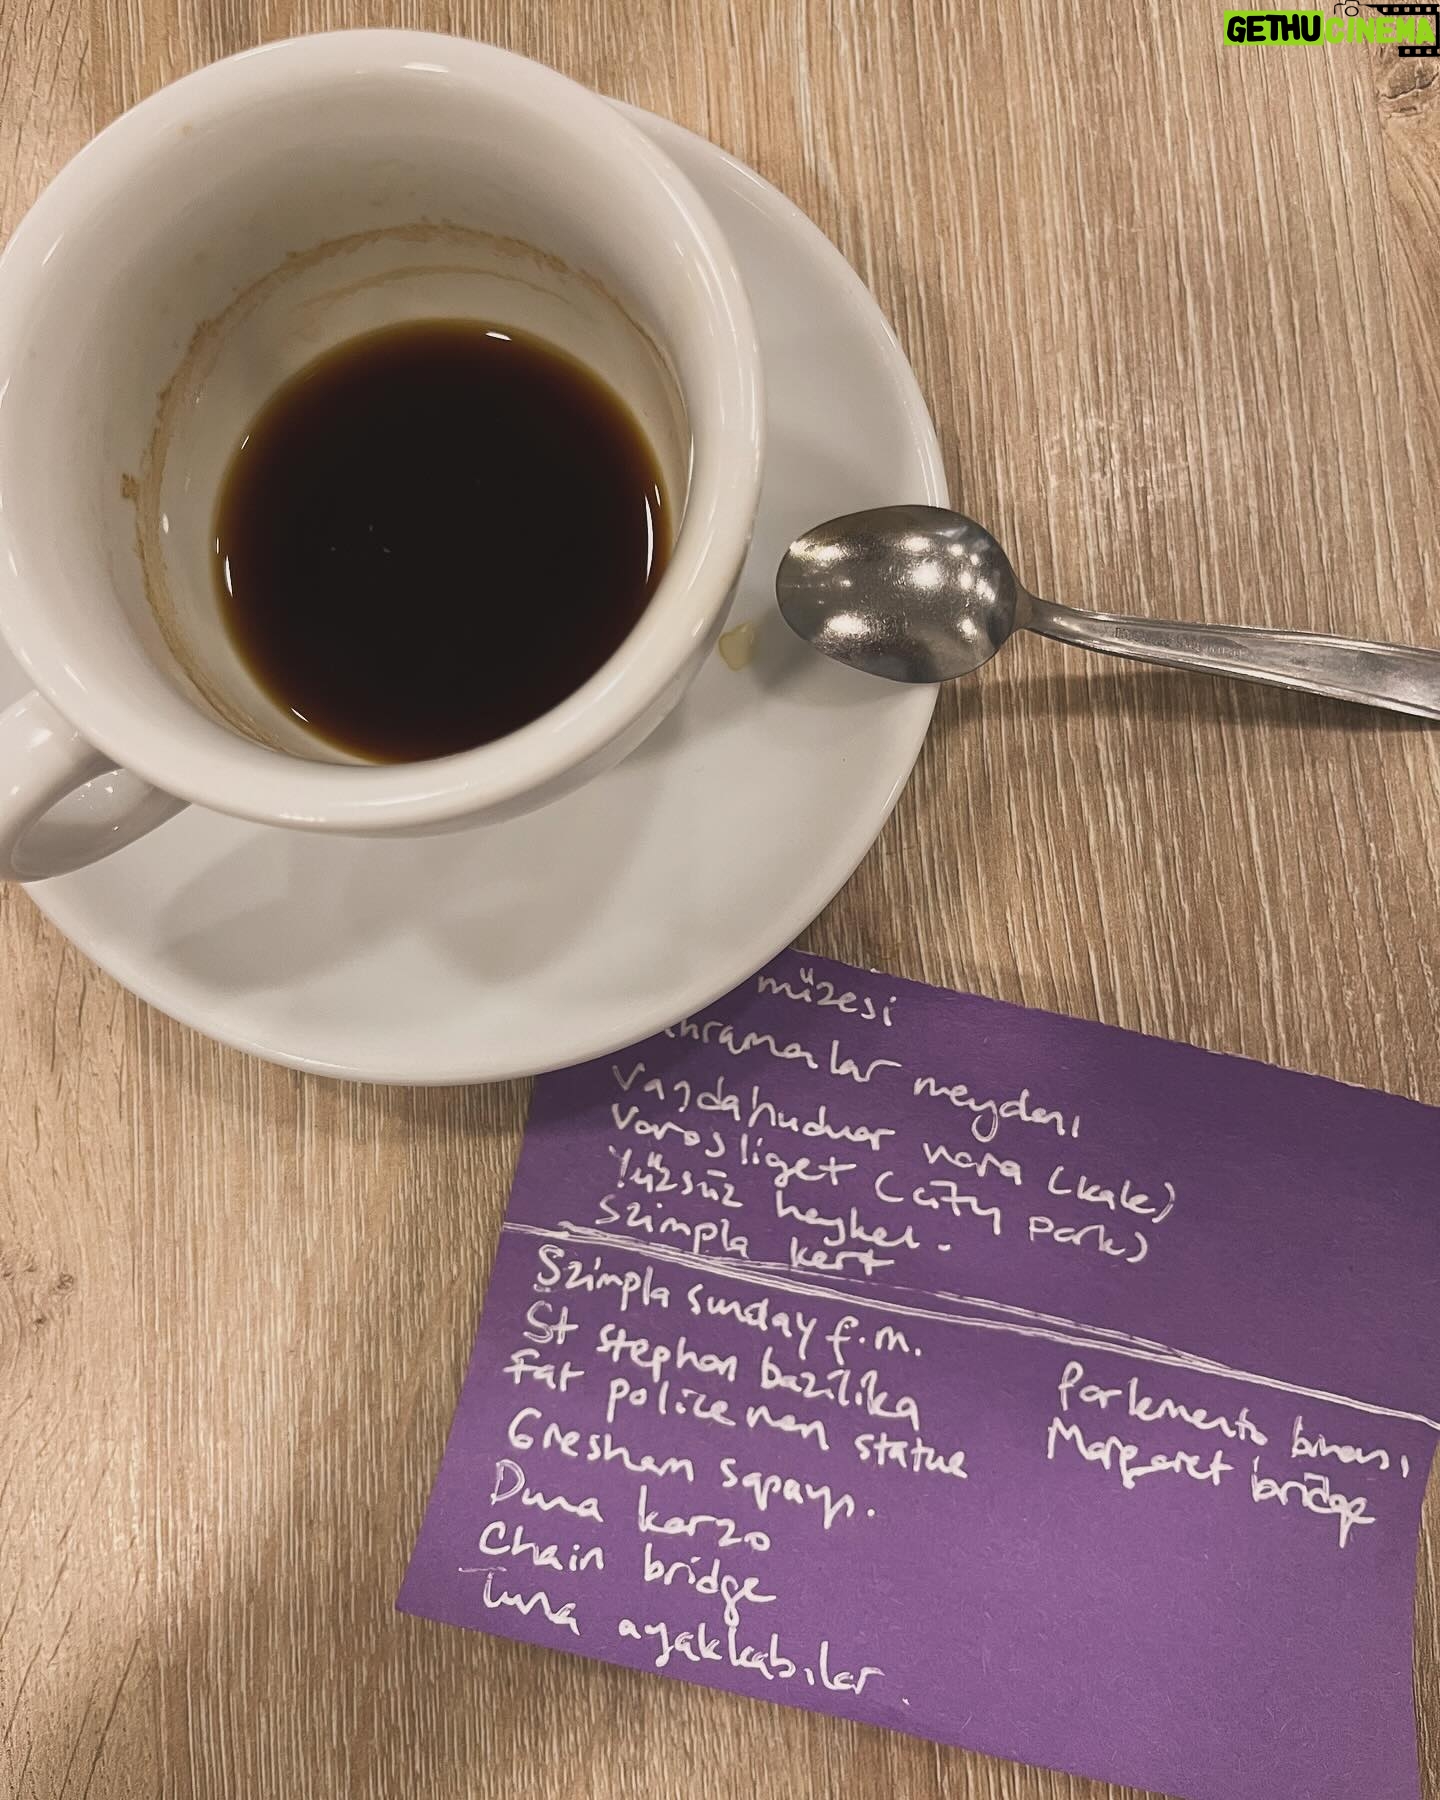 GETHUCINEMA
müzesi
ahramanlar meydanı
Vajdahudvar vara (kale)
Varosliget (city park)
Yüzsüz heykel.
Szimpla kert
Szimpla sunday f.m.
St stephan bazilika
Fat policeman statue
Gresham sarayı.
Duna korzo
Chain bridge
Tuna ayakkabıları.
Parlemento binası
Margaret bridge